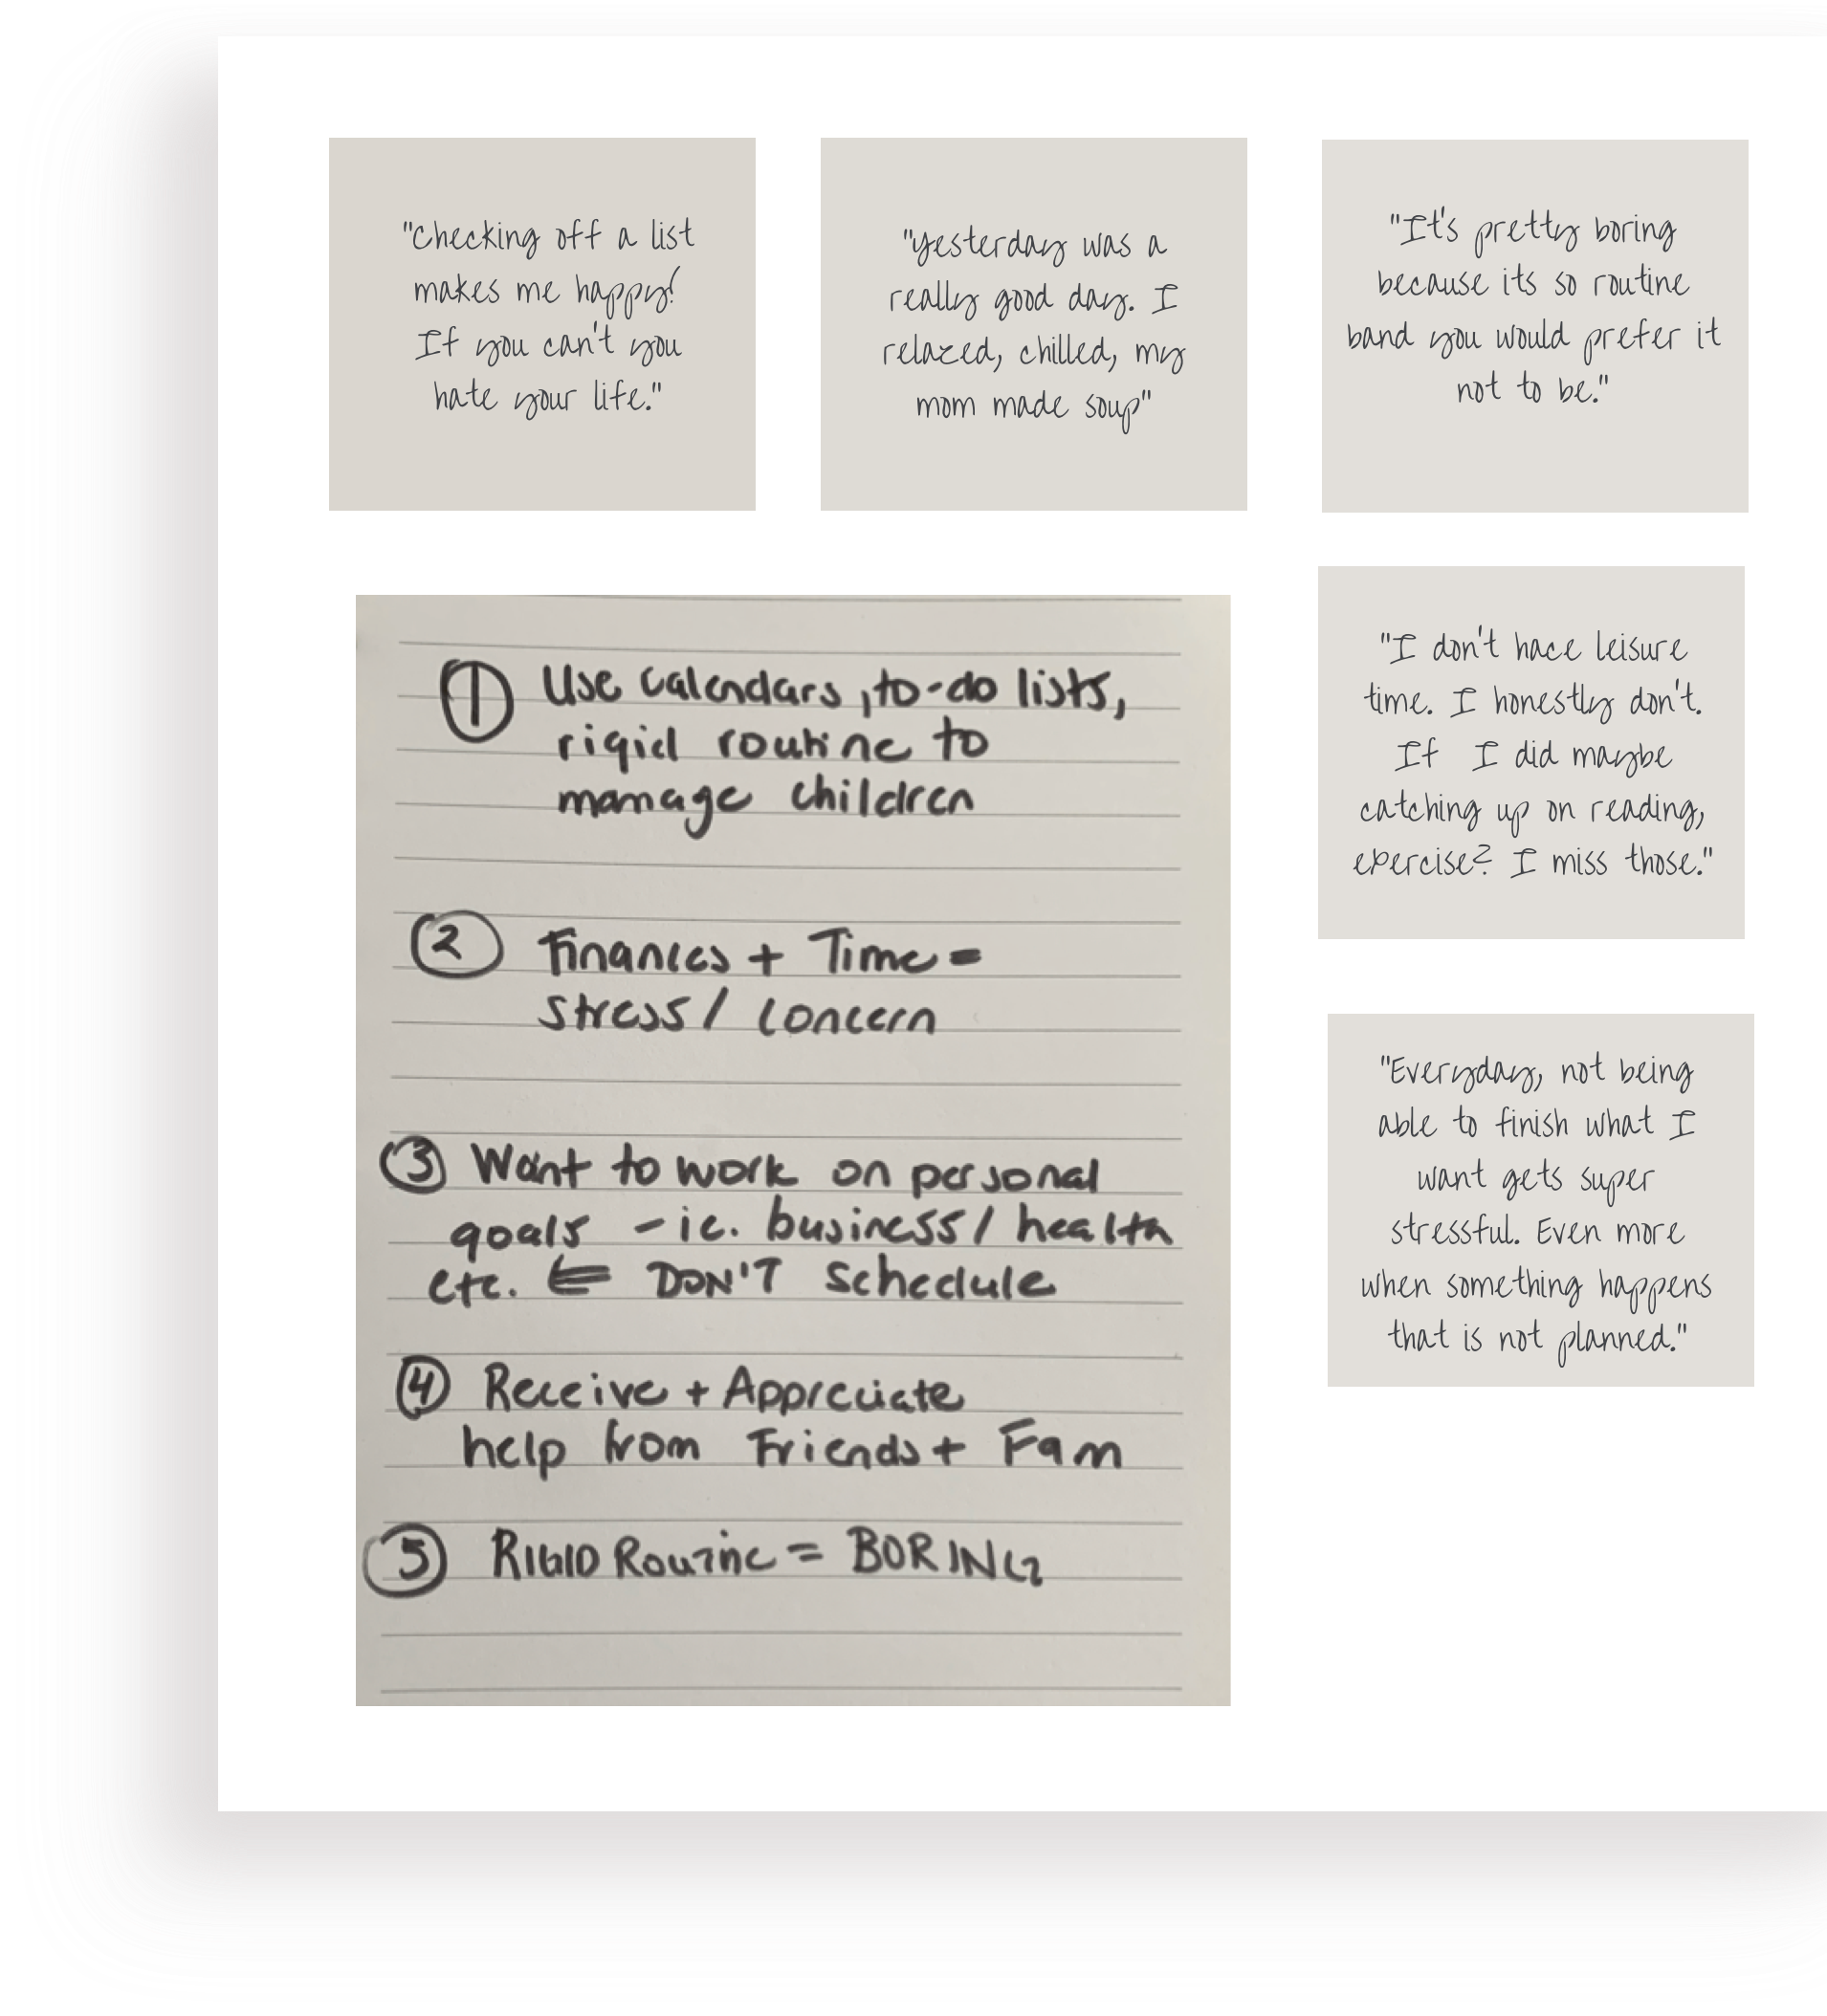 "Checking off a list
makes me happy!
If you can't you
hate your life."
"Yesterday was a
really good day. I
relaxed, chilled, my
mom made soup"
"It's pretty boring
because its so routine
band you would prefer it
not to be."
① Use calendars, to-do lists,
rigid routine to
manage children
② Finances + Time =
stress / concern
③ Want to work on personal
goals - ie. business / health
etc. ⇐ DON'T schedule
④ Receive + Appreciate
help from Friends + Fam
⑤ RIGID Routine = BORING
"I don't hace leisure
time. I honestly don't.
If I did maybe
catching up on reading,
exercise? I miss those."
"Everyday, not being
able to finish what I
want gets super
stressful. Even more
when something happens
that is not planned."